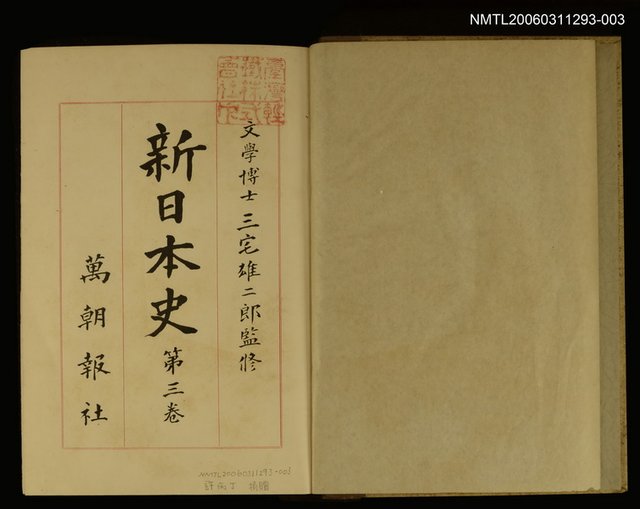 NMTL20060311293-003
文學博士 三宅雄二郎監修
新日本史 第三卷
萬朝報社
NMTL20060311293-003